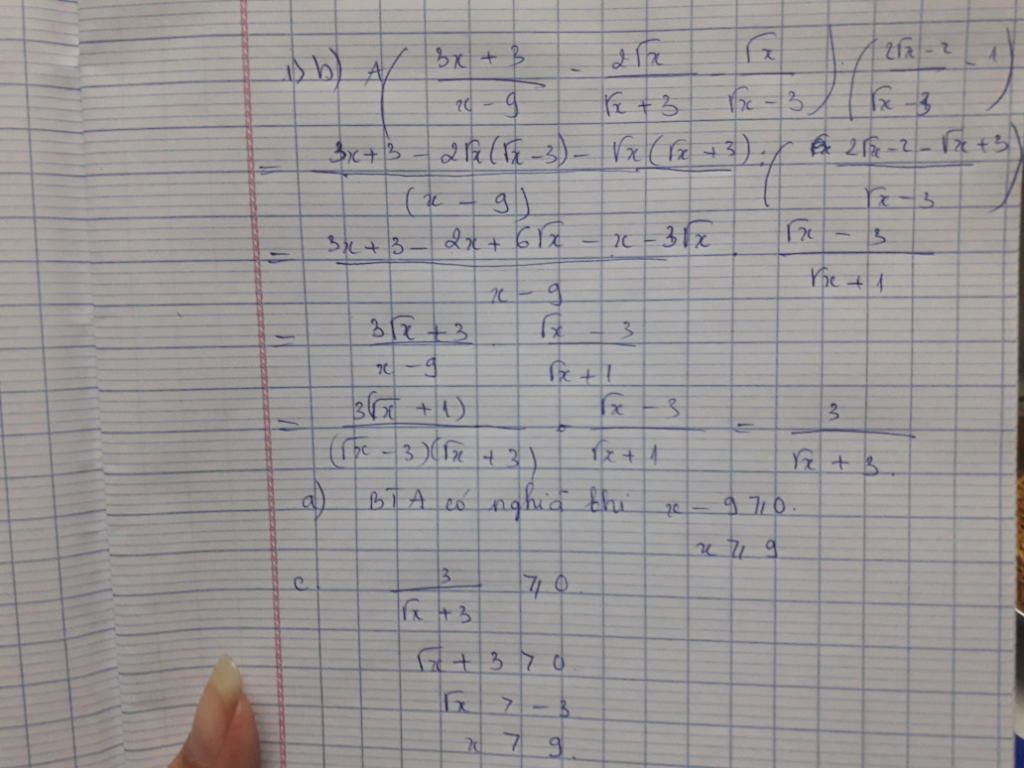 1) b) A ( (3x + 3)/(x - 9) - 2√x/(√x + 3) - √x/(√x - 3) ) : ( (2√x - 2)/(√x - 3) - 1 )
= (3x + 3 - 2√x(√x - 3) - √x(√x + 3))/((x - 9)) : ( (2√x - 2 - √x + 3)/(√x - 3) )
= (3x + 3 - 2x + 6√x - x - 3√x)/(x - 9) . (√x - 3)/(√x + 1)
= (3√x + 3)/(x - 9) . (√x - 3)/(√x + 1)
= 3(√x + 1)/((√x - 3)(√x + 3)) . (√x - 3)/(√x + 1) = 3/(√x + 3).
a) BTA có nghĩa khi x - 9 ⩾ 0.
x ⩾ 9
c. 3/(√x + 3) ⩾ 0
√x + 3 > 0
√x > - 3
x > 9.